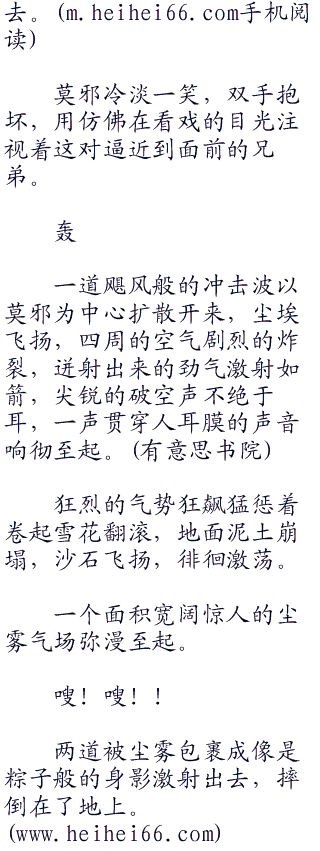 去。(m.heihei66.com手机阅
读)
莫邪冷淡一笑，双手抱
坏，用仿佛在看戏的目光注
视着这对逼近到面前的兄
弟。
轰
一道飓风般的冲击波以
莫邪为中心扩散开来，尘埃
飞扬，四周的空气剧烈的炸
裂，迸射出来的劲气激射如
箭，尖锐的破空声不绝于
耳，一声贯穿人耳膜的声音
响彻至起。(有意思书院)
狂烈的气势狂飙猛惩着
卷起雪花翻滚，地面泥土崩
塌，沙石飞扬，徘徊激荡。
一个面积宽阔惊人的尘
雾气场弥漫至起。
嗖！嗖！！
两道被尘雾包裹成像是
粽子般的身影激射出去，摔
倒在了地上。
(www.heihei66.com)